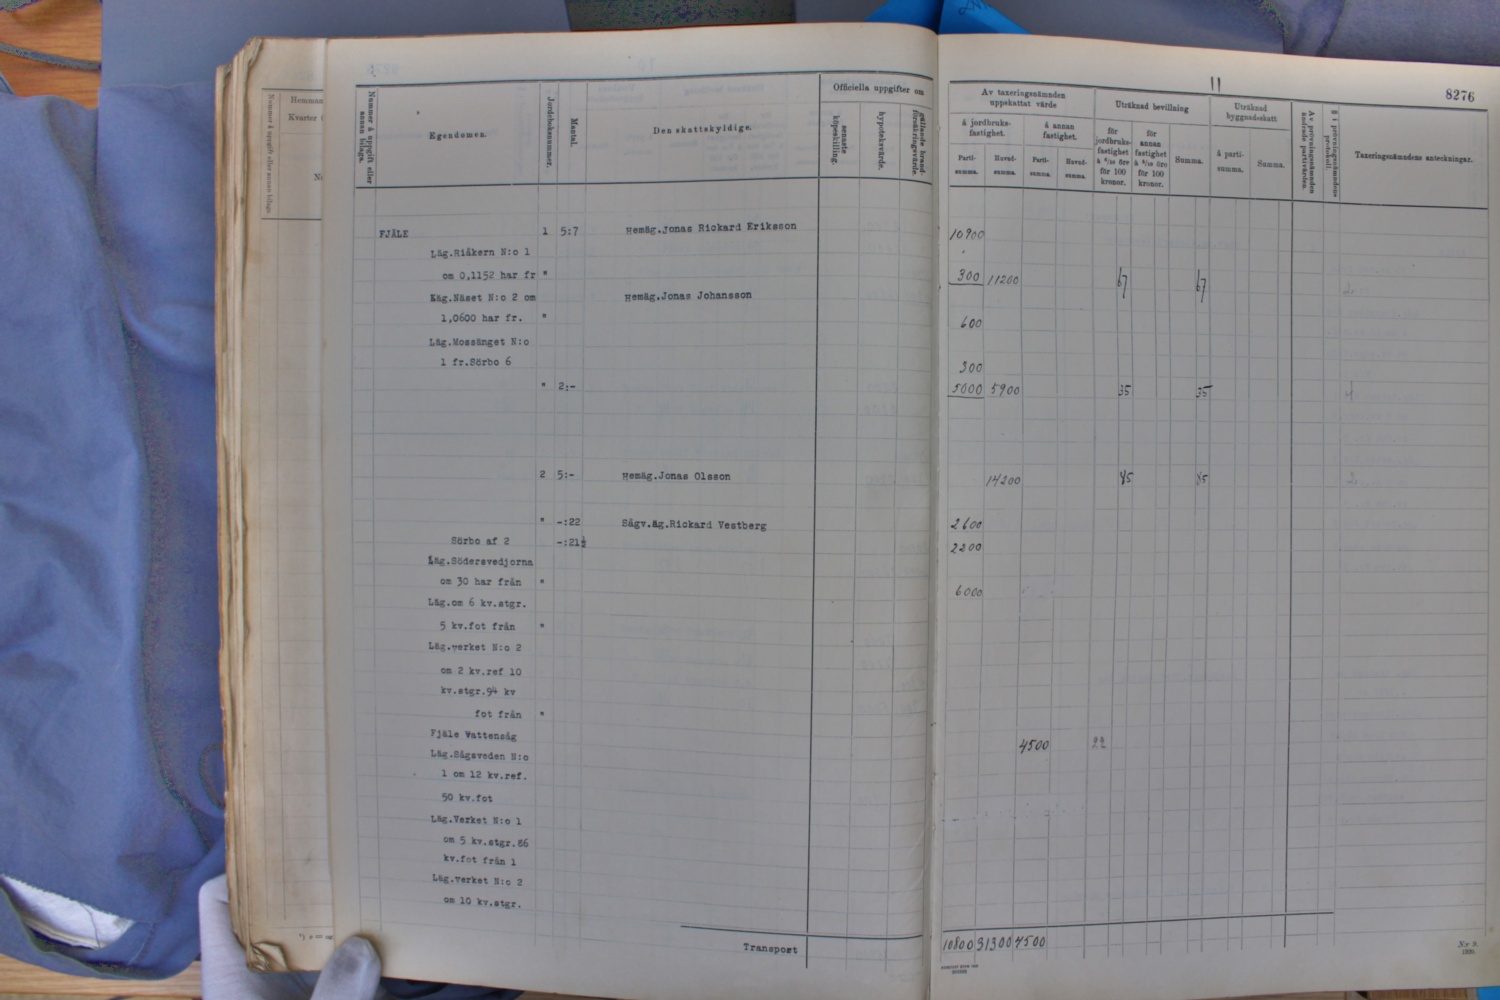 11
8276
Nummer å uppgift eller annan bilaga.
Egendomen.
Jordeboksnummer.
Mantal.
Den skattskyldige.
Officiella uppgifter om
senaste köpeskilling.
hypoteksvärde.
gällande brandförsäkringsvärde.
Av taxeringsnämnden uppskattat värde
å jordbruksfastighet.
å annan fastighet.
Partisumma.
Huvudsumma.
Partisumma.
Huvudsumma.
Uträknad bevillning
för jordbruksfastighet å 6/10 öre för 100 kronor.
för annan fastighet å 5/10 öre för 100 kronor.
Summa.
Uträknad byggnadsskatt
å partisumma.
Summa.
Av prövningsnämnden ändrade partivärden.
§ i prövningsnämndens protokoll.
Taxeringsnämndens anteckningar.
FJÄLE 1 5:7 Hemäg.Jonas Rickard Eriksson 10900
Läg.Riåkern N:o 1
om 0,1152 har fr " 300 11200 67 67 2
Läg.Näset N:o 2 om Hemäg.Jonas Johansson
1,0600 har fr. " 600
Läg.Mossänget N:o
1 fr.Sörbo 6 300
" 2:- 5000 5900 35 35 4
2 5:- Hemäg.Jonas Olsson 14200 85 85 2
" -:22 Sågv.äg.Rickard Vestberg 2600
Sörbo af 2 -:21½ 2200
Läg.Södersvedjorna
om 30 har från " 6000
Läg.om 6 kv.stgr.
5 kv.fot från "
Läg.verket N:o 2
om 2 kv.ref 10
kv.stgr.94 kv
fot från "
Fjäle Vattensåg 4500 22
Läg.Sågsveden N:o
1 om 12 kv.ref.
50 kv.fot
Läg.Verket N:o 1
om 5 kv.stgr.86
kv.fot från 1
Läg.verket N:o 2
om 10 kv.stgr.
Transport 10800 31300 4500